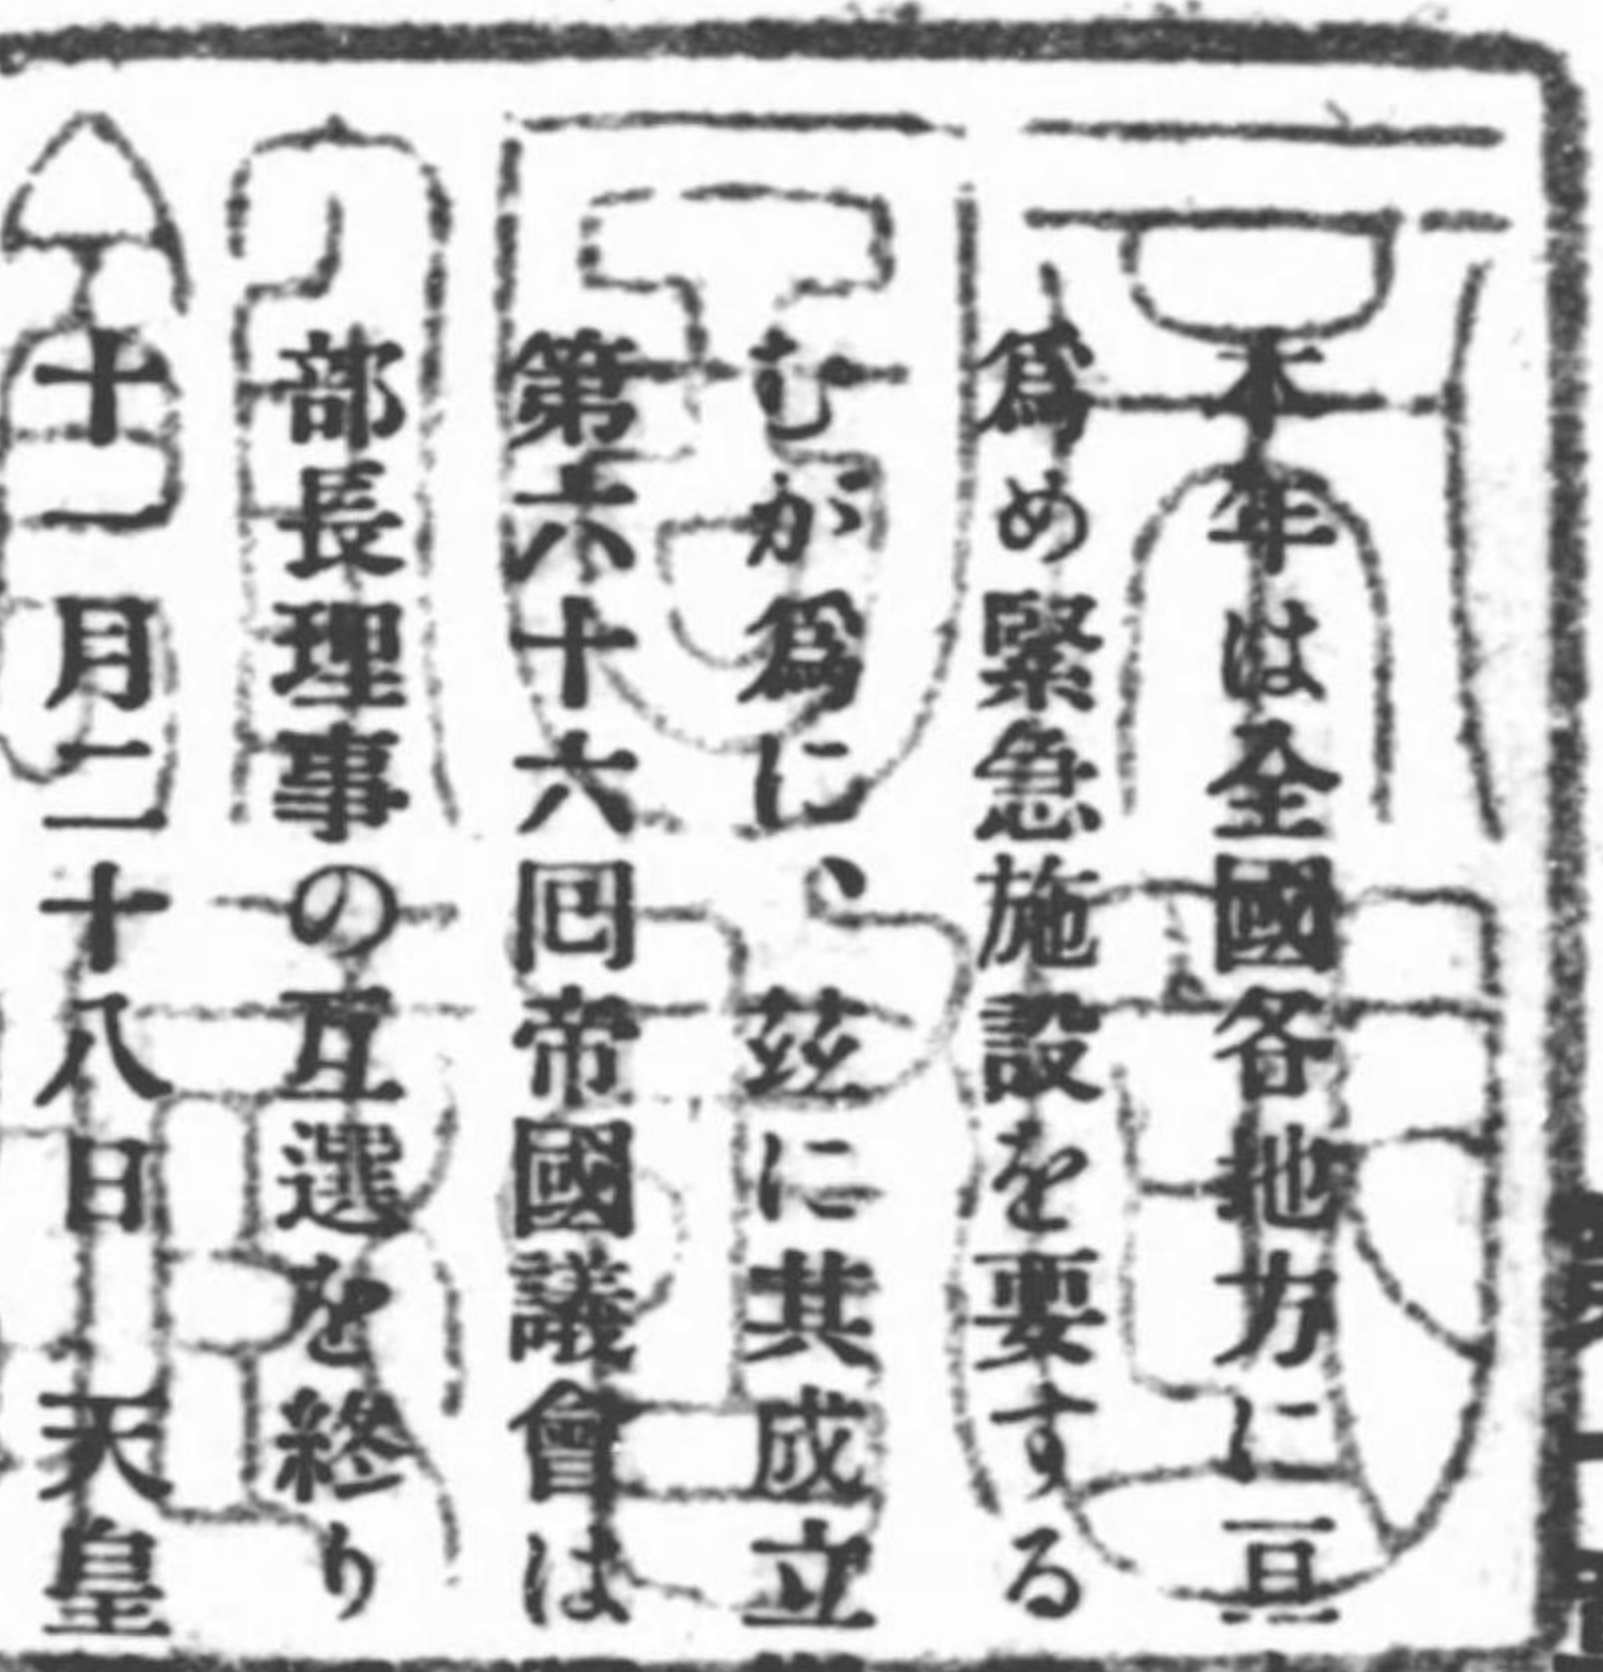 本年は全國各地方に亘
爲め緊急施設を要する
むが爲に、茲に其成立
第六十六囘帝國議會は
部長理事の互選を終り
十一月二十八日 天皇